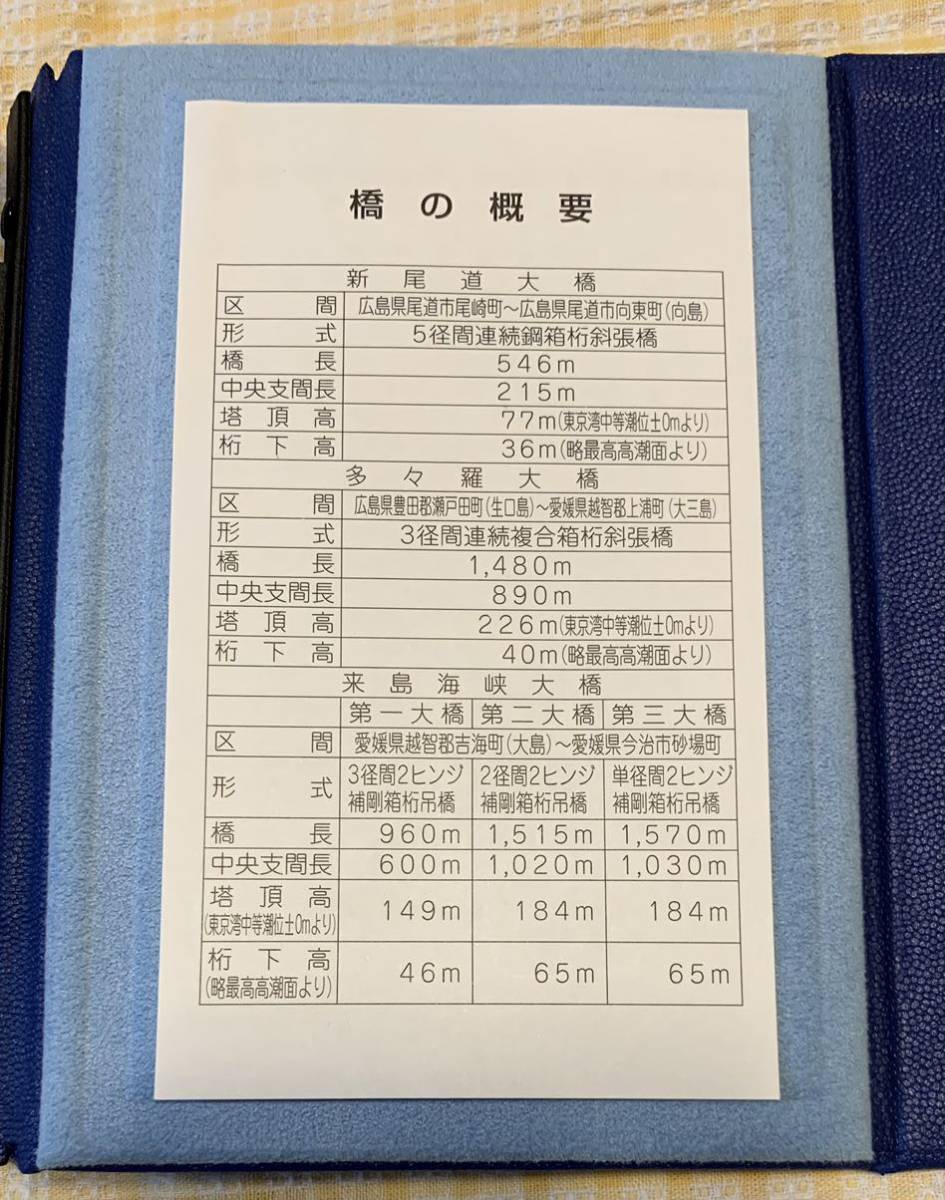 橋の概要
新尾道大橋
区間 広島県尾道市尾崎町～広島県尾道市向東町(向島)
形式 5径間連続鋼箱桁斜張橋
橋長 546m
中央支間長 215m
塔頂高 77m(東京湾中等潮位±0mより)
桁下高 36m(略最高高潮面より)
多々羅大橋
区間 広島県豊田郡瀬戸田町(生口島)～愛媛県越智郡上浦町(大三島)
形式 3径間連続複合箱桁斜張橋
橋長 1,480m
中央支間長 890m
塔頂高 226m(東京湾中等潮位±0mより)
桁下高 40m(略最高高潮面より)
来島海峡大橋
第一大橋 第二大橋 第三大橋
区間 愛媛県越智郡吉海町(大島)～愛媛県今治市砂場町
形式 3径間2ヒンジ 2径間2ヒンジ 単径間2ヒンジ
補剛箱桁吊橋 補剛箱桁吊橋 補剛箱桁吊橋
橋長 960m 1,515m 1,570m
中央支間長 600m 1,020m 1,030m
塔頂高 149m 184m 184m
(東京湾中等潮位±0mより)
桁下高 46m 65m 65m
(略最高高潮面より)